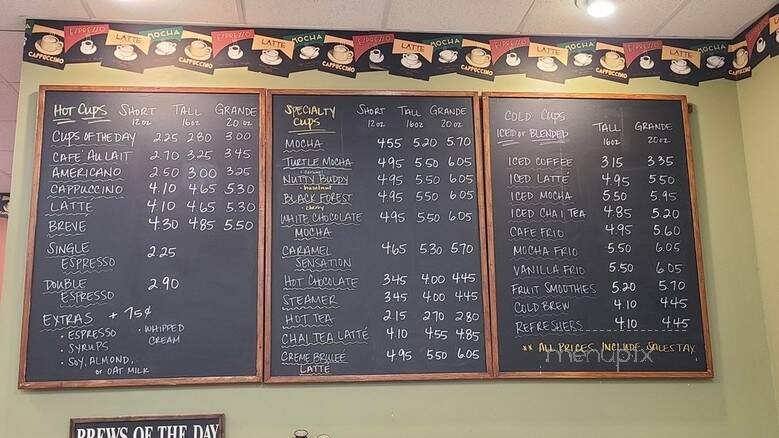 CAPPUCCINO ESPRESSO LATTE MOCHA CAPPUCCINO LATTE MOCHA ESPRESSO CAPPUCCINO LATTE MOCHA CAPPUCCINO ESPRESSO LATTE MOCHA CAPPUCCINO ESPRESSO LATTE MOCHA CAPPUCCINO ESPRESSO
HOT CUPS SHORT TALL GRANDE
12 oz 16 oz 20 oz
CUPS OF THE DAY 2.25 2.80 3.00
CAFE' AU LAIT 2.70 3.25 3.45
AMERICANO 2.50 3.00 3.25
CAPPUCCINO 4.10 4.65 5.30
LATTE 4.10 4.65 5.30
BREVE 4.30 4.85 5.50
SINGLE
ESPRESSO 2.25
DOUBLE
ESPRESSO 2.90
EXTRAS + 75¢
• ESPRESSO • WHIPPED
• SYRUPS CREAM
• SOY, ALMOND,
or OAT MILK
SPECIALTY SHORT TALL GRANDE
CUPS 12oz 16oz 20oz
MOCHA 4.55 5.20 5.70
TURTLE MOCHA 4.95 5.50 6.05
• caramel
NUTTY BUDDY 4.95 5.50 6.05
• hazelnut
BLACK FOREST 4.95 5.50 6.05
• cherry
WHITE CHOCOLATE 4.95 5.50 6.05
MOCHA
CARAMEL 4.65 5.30 5.70
SENSATION
HOT CHOCOLATE 3.45 4.00 4.45
STEAMER 3.45 4.00 4.45
HOT TEA 2.15 2.70 2.80
CHAI TEA LATTÉ 4.10 4.55 4.85
CREME BRULEE 4.95 5.50 6.05
LATTE
COLD CUPS
ICED or BLENDED TALL GRANDE
16oz 20oz
ICED COFFEE 3.15 3.35
ICED LATTE 4.95 5.50
ICED MOCHA 5.50 5.95
ICED CHAI TEA 4.85 5.20
CAFE FRIO 4.95 5.60
MOCHA FRIO 5.50 6.05
VANILLA FRIO 5.50 6.05
FRUIT SMOOTHIES 5.20 5.70
COLD BREW 4.10 4.45
REFRESHERS 4.10 4.45
** ALL PRICES INCLUDE SALES TAX
menupix
BREWS OF THE DAY